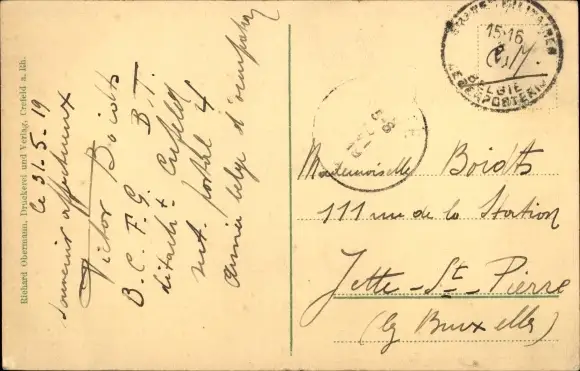 Richard Obermann, Druckerei und Verlag, Crefeld a. Rh.
Le 31-5-19
Souvenir affectueux
Victor Boidts
B.C.F.G. B.T.
détach t Crefeld
mt. postal 4
Armée belge d'occupation
POSTES MILITAIRES
15-16
C.M.
BELGIE
LEGERPOSTERIJ
Mademoiselle Boidts
111 rue de la Station
Jette-St-Pierre
(lez Bruxelles)